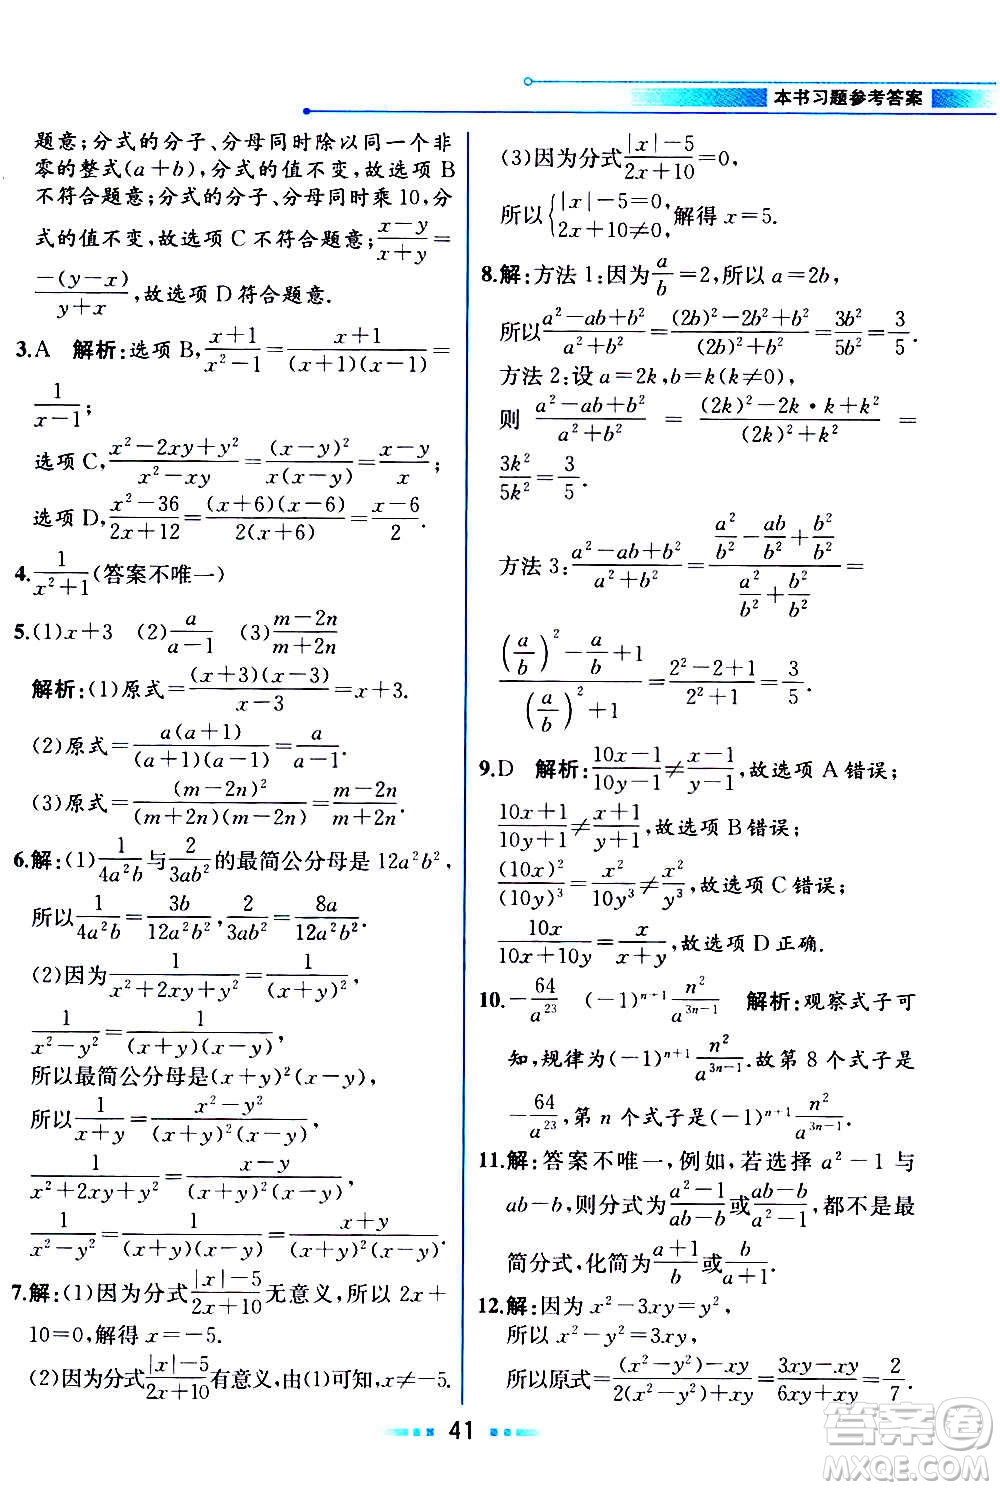 本书习题参考答案
题意;分式的分子、分母同时除以同一个非
零的整式(a+b),分式的值不变,故选项 B
不符合题意;分式的分子、分母同时乘 10,分
式的值不变,故选项 C 不符合题意;(x-y)/(x+y)=
-(y-x)/(y+x),故选项 D 符合题意.
3.A 解析:选项 B,(x+1)/(x²-1)=(x+1)/((x+1)(x-1))=
1/(x-1);
选项 C,(x²-2xy+y²)/(x²-xy)=(x-y)²/(x(x-y))=(x-y)/x;
选项 D,(x²-36)/(2x+12)=((x+6)(x-6))/(2(x+6))=(x-6)/2.
4.1/(x²+1)(答案不唯一)
5.(1)x+3 (2)a/(a-1) (3)(m-2n)/(m+2n)
解析:(1)原式=((x+3)(x-3))/(x-3)=x+3.
(2)原式=(a(a+1))/((a+1)(a-1))=a/(a-1).
(3)原式=(m-2n)²/((m+2n)(m-2n))=(m-2n)/(m+2n).
6.解:(1)1/(4a²b)与2/(3ab²)的最简公分母是 12a²b²,
所以1/(4a²b)=3b/(12a²b²),2/(3ab²)=8a/(12a²b²).
(2)因为1/(x²+2xy+y²)=1/(x+y)²,
1/(x²-y²)=1/((x+y)(x-y)),
所以最简公分母是(x+y)²(x-y),
所以1/(x+y)=(x²-y²)/((x+y)²(x-y)),
1/(x²+2xy+y²)=(x-y)/((x+y)²(x-y)),
1/(x²-y²)=1/((x+y)(x-y))=(x+y)/((x+y)²(x-y)).
7.解:(1)因为分式(|x|-5)/(2x+10)无意义,所以 2x+
10=0,解得 x=-5.
(2)因为分式(|x|-5)/(2x+10)有意义,由(1)可知,x≠-5.
(3)因为分式(|x|-5)/(2x+10)=0,
所以{|x|-5=0, 2x+10≠0,解得 x=5.
8.解:方法 1:因为a/b=2,所以 a=2b,
所以(a²-ab+b²)/(a²+b²)=((2b)²-2b²+b²)/((2b)²+b²)=3b²/5b²=3/5.
方法 2:设 a=2k,b=k(k≠0),
则 (a²-ab+b²)/(a²+b²) = ((2k)²-2k·k+k²)/((2k)²+k²) =
3k²/5k²=3/5.
方法 3:(a²-ab+b²)/(a²+b²)=(a²/b²-ab/b²+b²/b²)/(a²/b²+b²/b²)=
((a/b)²-a/b+1)/((a/b)²+1)=(2²-2+1)/(2²+1)=3/5.
9.D 解析:(10x-1)/(10y-1)≠(x-1)/(y-1),故选项 A 错误;
(10x+1)/(10y+1)≠(x+1)/(y+1),故选项 B 错误;
(10x)²/(10y)³=x²/(10y³)≠x²/y³,故选项 C 错误;
10x/(10x+10y)=x/(x+y),故选项 D 正确.
10.-64/a²³ (-1)ⁿ⁺¹n²/a³ⁿ⁻¹ 解析:观察式子可
知,规律为(-1)ⁿ⁺¹n²/a³ⁿ⁻¹.故第 8 个式子是
-64/a²³,第 n 个式子是(-1)ⁿ⁺¹n²/a³ⁿ⁻¹.
11.解:答案不唯一,例如,若选择 a²-1 与
ab-b,则分式为(a²-1)/(ab-b)或(ab-b)/(a²-1),都不是最
简分式,化简为(a+1)/b或b/(a+1).
12.解:因为 x²-3xy=y²,
所以 x²-y²=3xy,
所以原式=((x²-y²)-xy)/(2(x²-y²)+xy)=(3xy-xy)/(6xy+xy)=2/7.
41
答案卷
MXQE.COM